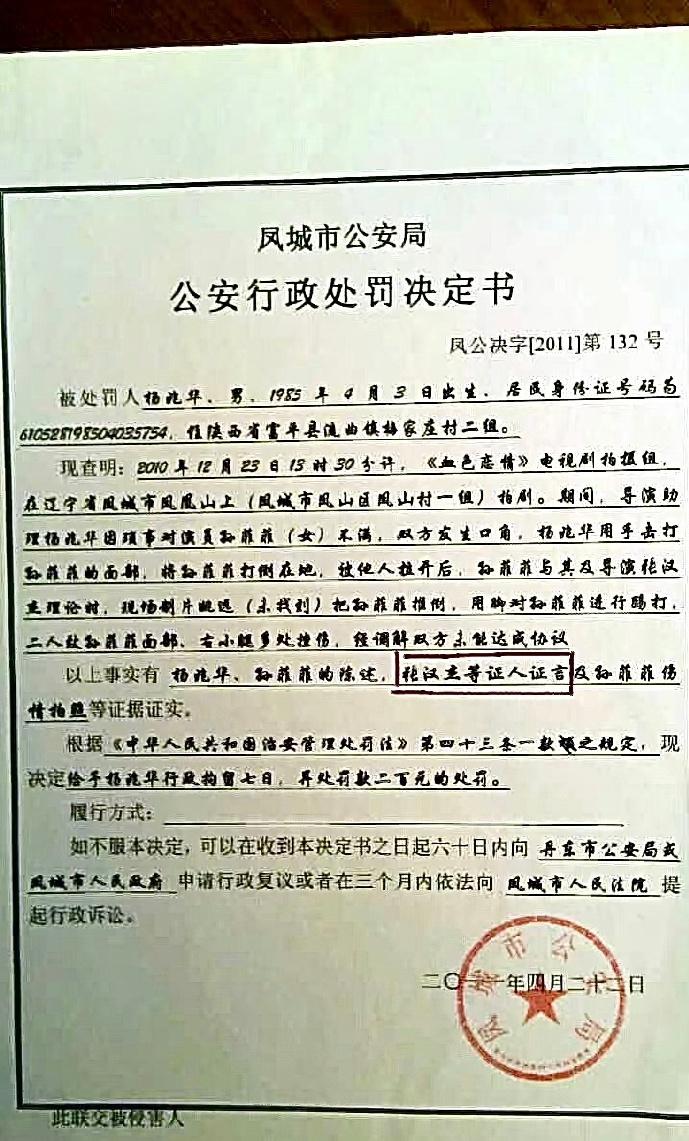 凤城市公安局
公安行政处罚决定书
凤公决字[2011]第 132 号
被处罚人杨兆华、男、1985 年 4 月 3 日出生、居民身份证号码为
610528198504035754,住陕西省富平县流曲镇杨家庄村二组。
现查明:2010 年 12 月 23 日 13 时 30 分许,《血色恋情》电视剧拍摄组,
在辽宁省凤城市凤凰山上(凤城市凤山区凤山村一组)拍剧。期间,导演助
理杨兆华因琐事对演员孙菲菲(女)不满,双方发生口角,杨兆华用手击打
孙菲菲的面部,将孙菲菲打倒在地,被他人拉开后,孙菲菲与其及导演张汉
杰理论时,现场制片姚远(未找到)把孙菲菲推倒,用脚对孙菲菲进行踢打,
二人致孙菲菲面部、右小腿多处挫伤,经调解双方未能达成协议
以上事实有 杨兆华、孙菲菲的陈述,张汉杰等证人证言及孙菲菲伤
情拍照等证据证实。
根据《中华人民共和国治安管理处罚法》第四十三条一款 之规定,现
决定给予杨兆华行政拘留七日,并处罚款二百元的处罚。
履行方式:
如不服本决定,可以在收到本决定书之日起六十日内向 丹东市公安局或
凤城市人民政府 申请行政复议或者在三个月内依法向 凤城市人民法院 提
起行政诉讼。
二〇一一年四月二十二日
凤城市公安局
此联交被侵害人